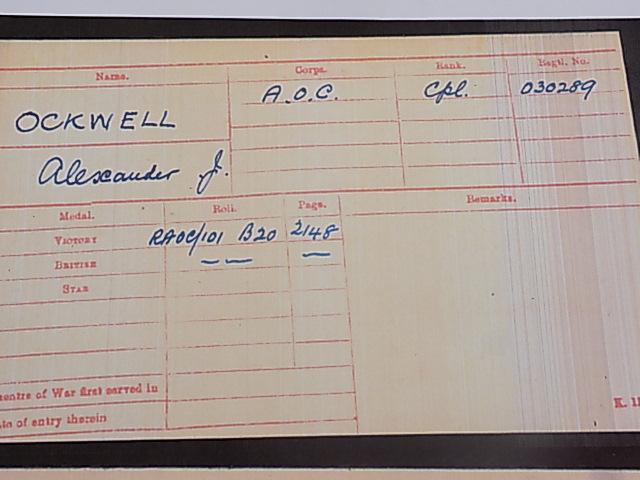 Name. Corps. Rank. Regtl. No.
OCKWELL A.O.C. Cpl. 030289
Alexander J.
Medal. Roll. Page. Remarks.
VICTORY RAOC/101 B20 2148
BRITISH — — —
STAR
eatre of War first served in
te of entry therein
K. 11